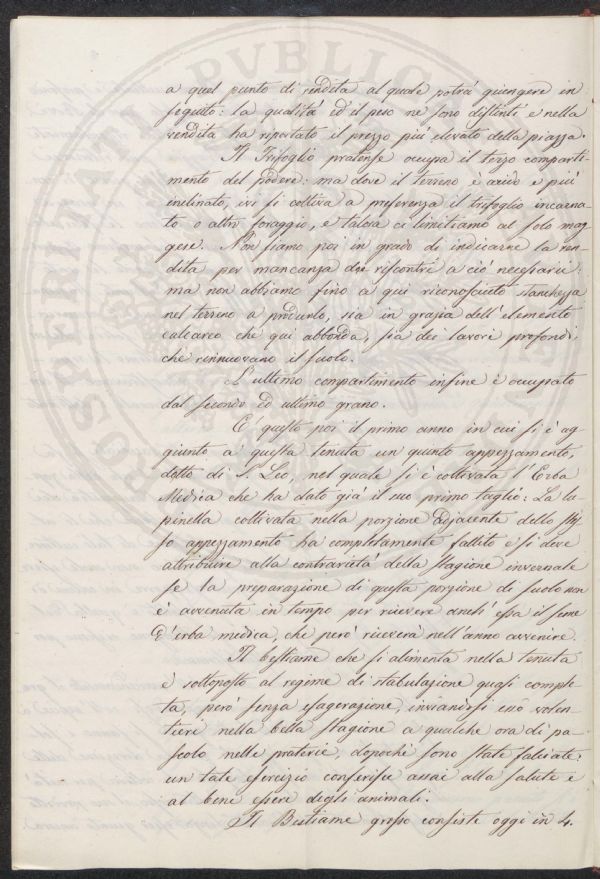 a quel punto di rendita al quale potrà giungere in
seguito: la qualità ed il peso ne sono distinti e nella
vendita ha riportato il prezzo più elevato della piazza.
Il Trifoglio pratense occupa il terzo comparti-
mento del podere: ma dove il terreno è arido e più
inclinato, ivi si coltiva a preferenza il trifoglio incarna-
to o altro foraggio, e talora ci limitiamo al solo mag-
gese. Non siamo poi in grado di indicarne la ren-
dita per mancanza dei riscontri a ciò necessarii:
ma non abbiamo fino a qui riconosciuto stanchezza
nel terreno a produrlo, sia in grazia dell'elemento
calcareo che qui abbonda, sia dei lavori profondi,
che rinnuovano il suolo.
L'ultimo compartimento infine è occupato
dal secondo ed ultimo grano.
È questo poi il primo anno in cui si è ag-
giunto a questa tenuta un quinto appezzamento,
detto di S. Leo, nel quale si è coltivata l'Erba
Medica che ha dato già il suo primo taglio: La lu-
pinella coltivata nella porzione adjacente dello stes-
so appezzamento ha completamente fallito e si deve
attribuire alla contrarietà della stagione invernale
se la preparazione di questa porzione di suolo non
è avvenuta in tempo per ricevere anch'essa il seme
d'erba medica, che però riceverà nell'anno avvenire.
Il bestiame che si alimenta nella tenuta
è sottoposto al regime di stabulazione quasi comple-
ta, però senza esagerazione, inviandosi esso volen-
tieri nella bella stagione a qualche ora di pa-
scolo nelle praterie, dopochè sono state falciate:
un tale esercizio conferisce assai alla salute e
al bene essere degli animali.
Il Bestiame grosso consiste oggi in 4.
PROSPERITATI PVBLICAE